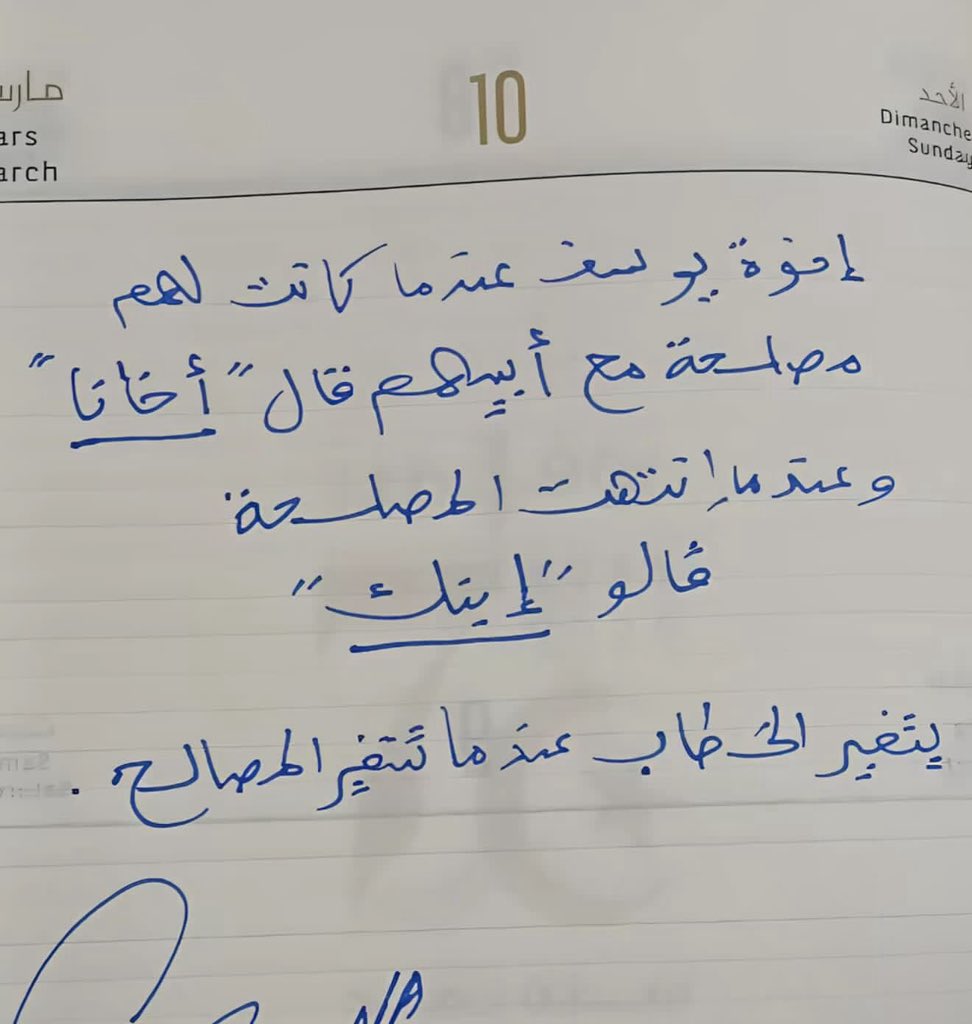 مارس
ars
arch
10
الأحد
Dimanche
Sunday
إخوة يوسف عندما كانت لهم
مصلحة مع أبيهم قال "أخانا"
وعندما انتهت المصلحة
قالو "إبنك"
يتغير الخطاب عندما تتغير المصالح.